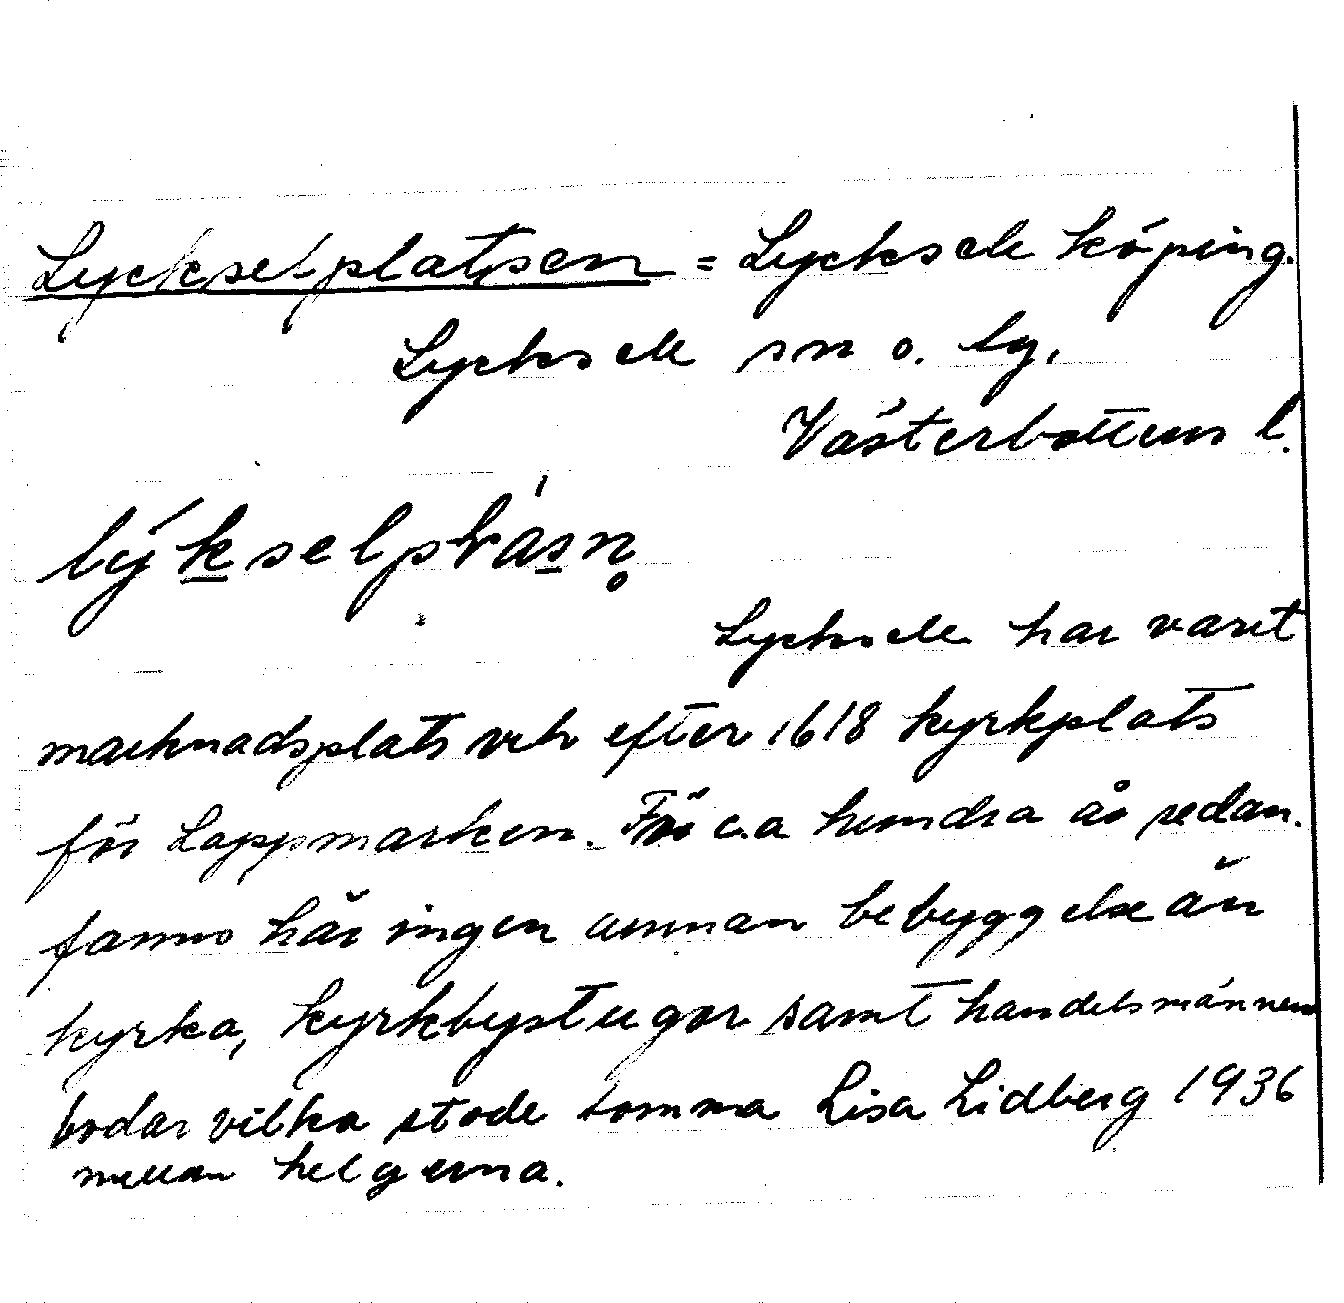 Lyckselplatsen = Lycksele köping.
Lycksele sn o. lg.
Västerbottens l.
Lycksele har varit
marknadsplats och efter 1618 kyrkplats
för Lappmarken. För c:a hundra år sedan
fanns här ingen annan bebyggelse än
kyrka, kyrkbystugor samt handelsmännens
bodar vilka stode tomma Lisa Lidberg 1936
mellan helgerna.